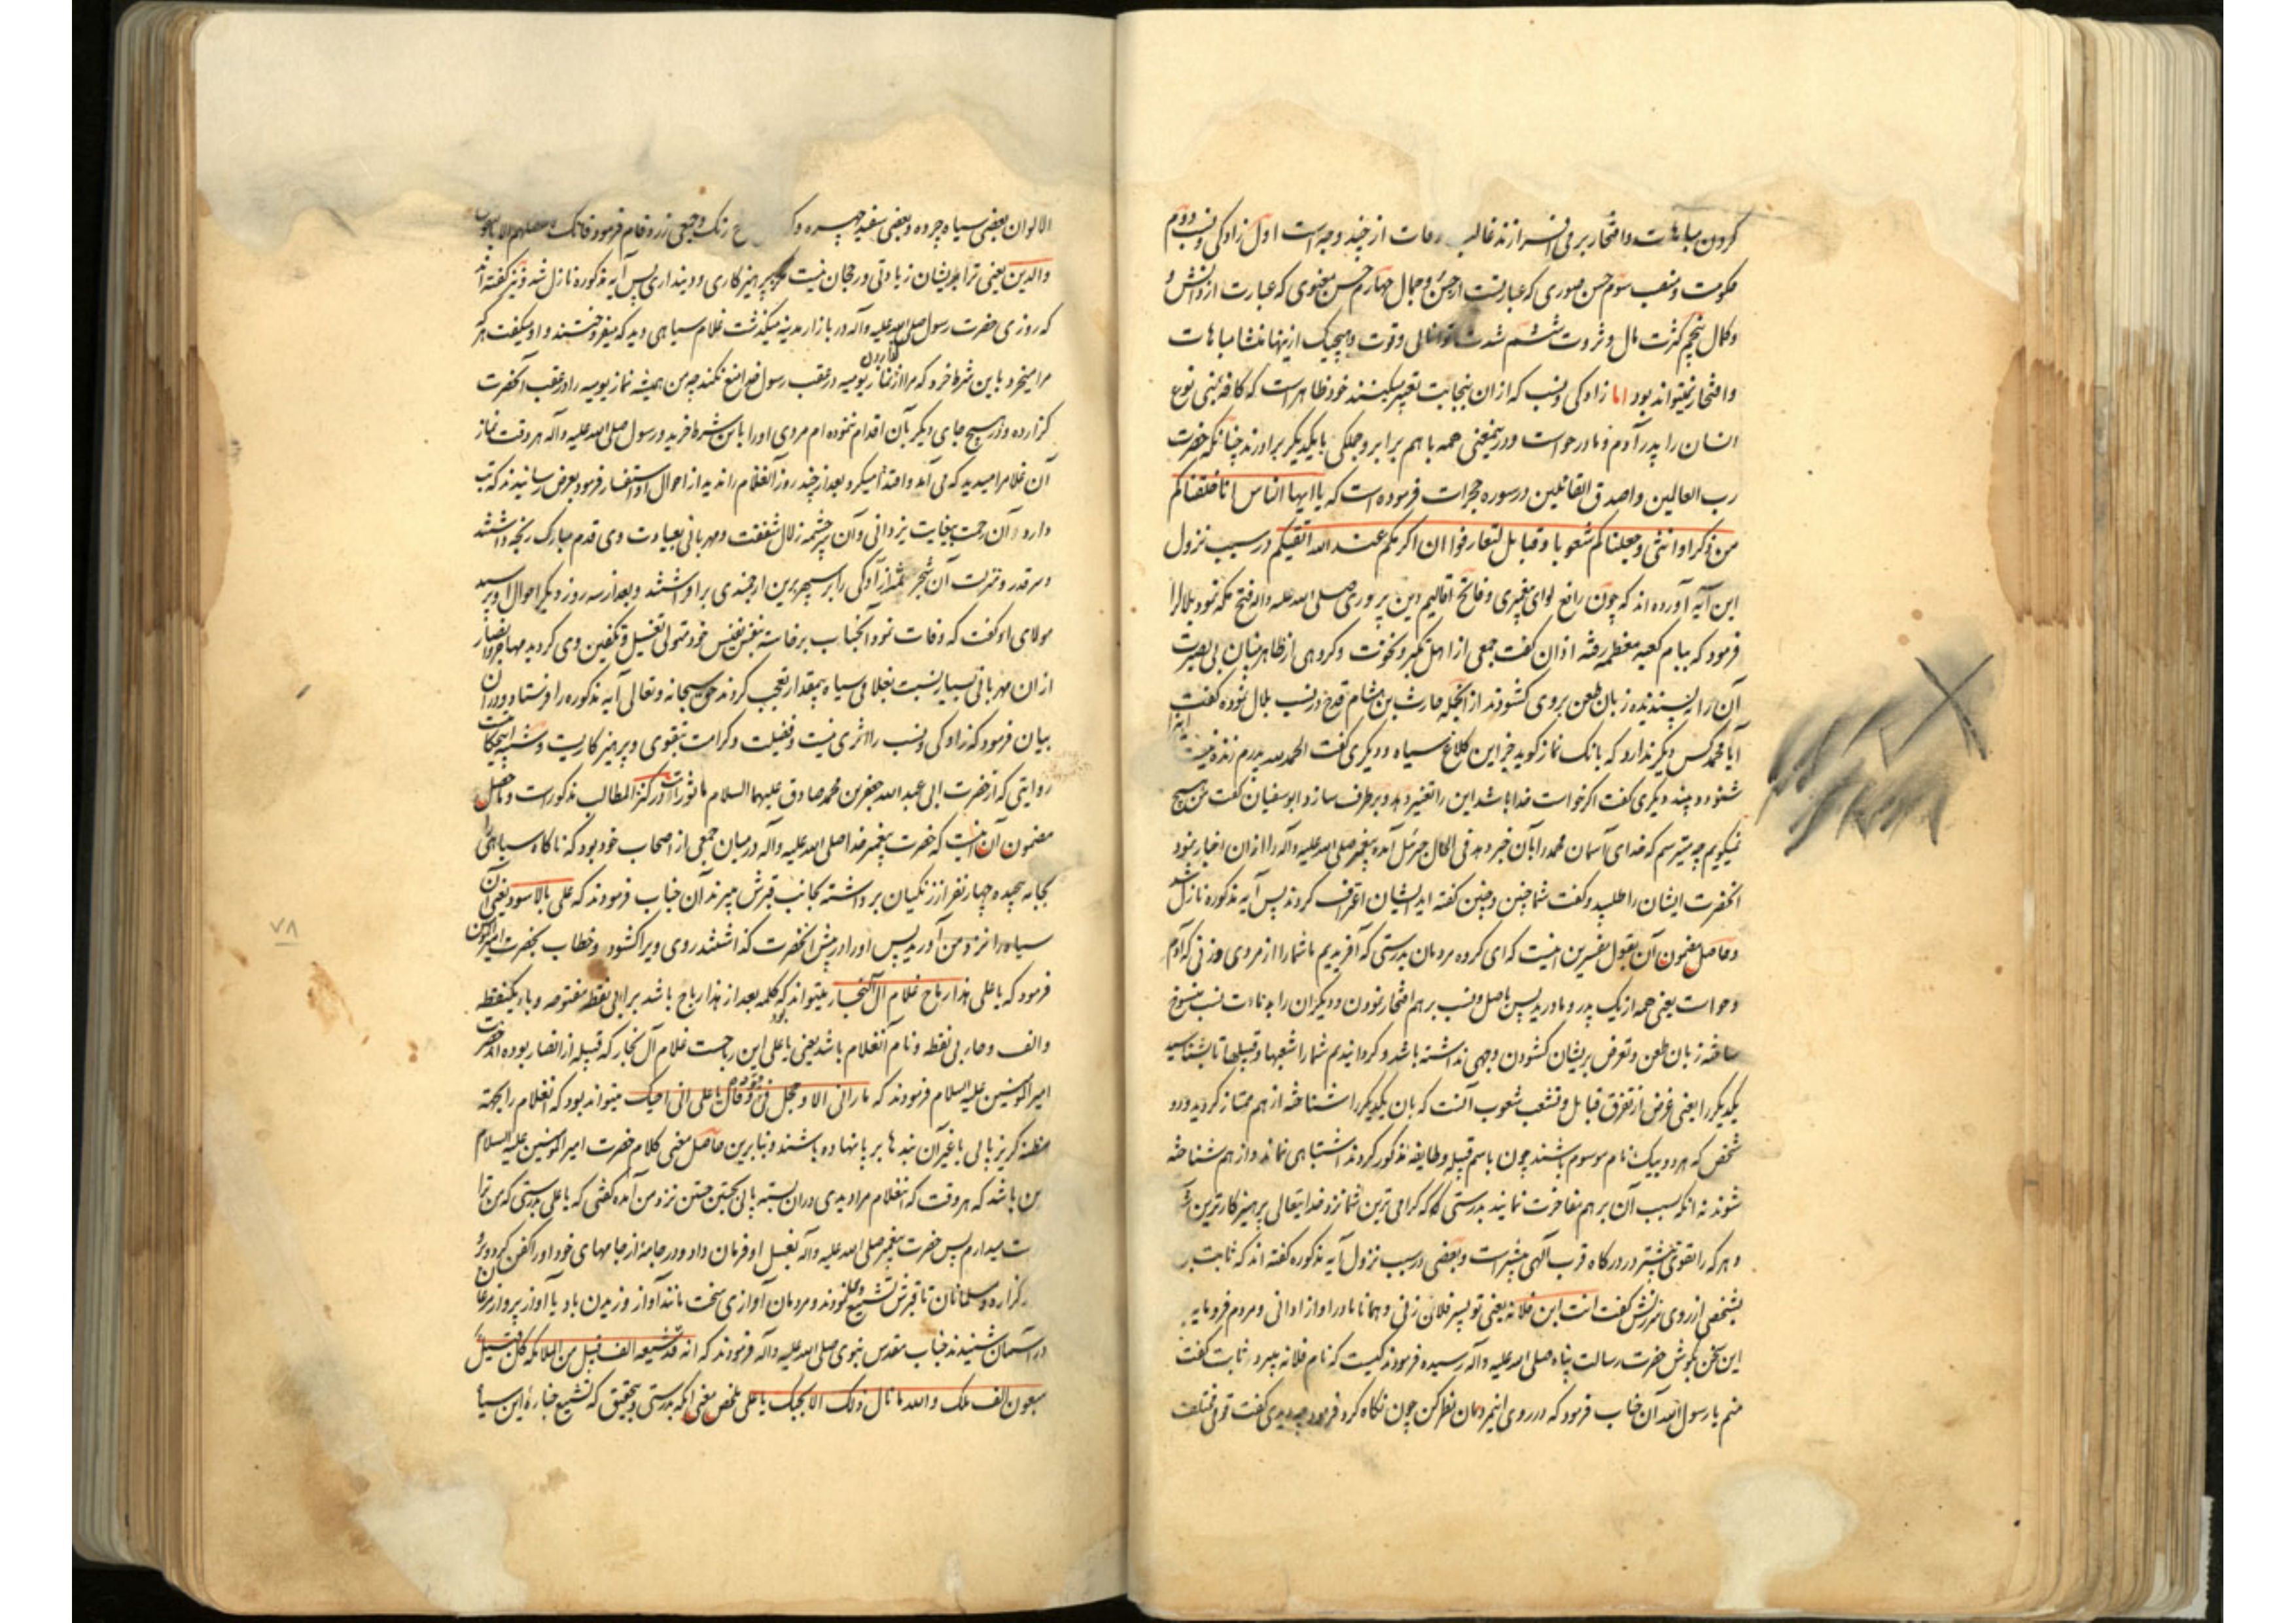 کردن مباهات و افتخار بر می افرازند غالب اوقات از چند وجه است اول زادکی و نسب دویم
حکومت و منصب سوم حسن صوری که عبارتست از حسن و جمال چهارم حسن معنوی که عبارت از دانش و
و کمال پنجم کثرت مال و ثروت ششم شدت توانائی و قوت و هیچیک ازینها منشا مباهات
و افتخار نمیتواند بود اما زادکی و نسب که ازان بنجابت تعبیر میکنند خود ظاهر است که کافه بنی نوع
انسان را پدر آدم و مادر حواست و درینمعنی همه با هم برابر و جملکی با یکدیکر برادرند چنانکه حضرت
رب العالمین و اصدق القائلین در سوره حجرات فرموده است که یا ایها الناس انا خلقناکم
من ذکر او انثی و جعلناکم شعوبا و قبایل لتعارفوا ان اکرمکم عند الله اتقیکم در سبب نزول
این آیه آورده اند که چون رافع لوای پیغمبری و فاتح اقالیم دین پروری صلی الله علیه و اله فتح مکه نمود بلال را
فرمود که ببام کعبه معظمه رفته اذان کفت جمعی از اهل تکبر و نخوت و کروهی از ظاهر بینان بی بصیرت
آن را نپسندیده زبان طعن بروی کشودند از انجمله حارث بن هشام قدح در نسب بلال نموده کفت
آیا محمد کس دیکر ندارد که بانک نماز کوید جز این کلاغ سیاه و دیکری کفت الحمد لله پدرم زنده نیست اینرا
شنود و بیند دیکری کفت اکر خواست خدا باشد این را تغییر دهد و برطرف سازد ابو سفیان کفت من هیچ
نمیکویم چه میترسم که خدای آسمان محمد را بآن خبر دهد فی الحال جبرئیل آمده پیغمبر صلی الله علیه و آله را ازان اخبار نمود
انحضرت ایشان را طلبید و کفت شما چنین و چنین کفته اید ایشان اعتراف کردند پس آیه مذکوره نازل شد
و حاصل مضمون آن بقول مفسرین اینست که ای کروه مردمان بدرستی که آفریدیم ما شما را از مردی و زنی که آدم
و حواست یعنی همه از یک پدر و مادرید پس باصل و نسب بر هم افتخار نمودن و دیکران را بدنائت نسب منسوخ
ساخته زبان طعن و تعرض بریشان کشودن وجهی نداشته باشد و کردانیدیم شما را شعبها و قبیلها تا بشناسید
یکدیکر را یعنی غرض از تفرق قبایل و تشعب شعوب آنست که بآن یکدیکر را شناخته از هم ممتاز کردید و دو
شخص که هر دو بیک نام موسوم باشند چون باسم قبیله و طایفه مذکور کردند اشتباهی نماند و از هم شناخته
شوند نه انکه بسبب آن بر هم مفاخرت نمایند بدرستی که کرامی ترین شما نزد خدایتعالی پرهیزکارترین
و هر که را تقوی بیشتر در درکاه قرب آلهی بیشتر است و بعضی در سبب نزول آیه مذکوره کفته اند که ثابت بن
بشخصی از روی سرزنش کفت انت ابن فلانه یعنی تو پسر فلان زنی و همانا مادر او از ادانی و مردم فرومایه
این سخن بکوش حضرت رسالت پناه صلی الله علیه و آله رسیده فرمودند کیست که نام فلانه میبرد ثابت کفت
منم یا رسول الله آن جناب فرمود که در روی اینمردمان نظر کن چون نکاه کرد فرمود چه دیدی کفت قومی مختلف
الالوان بعضی سیاه چرده و بعضی سفید چهره و رنک و جمعی زرد فام فرمود فانک لا تفضلهم الا بالتقوی
والدین یعنی ترا بریشان زیادتی و رجحان نیست مکر بپرهیزکاری و دینداری پس آیه مذکوره نازل شد و نیز کفته اند
که روزی حضرت رسول صلی الله علیه و آله در بازار مدینه میکذشت غلام سیاهی دید که میفروختند و او میکفت هر که
مرا میخرد باین شرط خرد که مرا از نماز کزاردن یومیه در عقب رسول خدا منع نکند چه من همیشه نماز یومیه را در عقب آنحضرت
کزارده و در هیچ جای دیکر بآن اقدام ننموده ام مردی او را باین شرط خرید و رسول صلی الله علیه و آله هر وقت نماز
آن غلام را میدید که می آمد و اقتدا میکرد بعد از چند روز آنغلام را ندید از احوال او استفسار فرمود بعرض رسانیدند که تب
دارد آن رحمت بیغایت یزدانی و آن سرچشمه زلال شفقت و مهربانی بعیادت وی قدم مبارک رنجه داشتند
و سر قدر و منزلت آن شجر ثمر آزادکی را بر سپهر برین ارجمندی برافراشتند و بعد از سه روز دیکر احوال او پرسید
مولای او کفت که وفات نمود آنجناب برخاسته بنفس نفیس خود متولی تغسیل و تکفین وی کردید مهاجر و انصار
ازان مهربانی بسیار نسبت بغلامی سیاه بیمقدار تعجب کردند حق سبحانه و تعالی آیه مذکوره را فرستاد و در آن
بیان فرمود که زادکی و نسب را اثری نیست و فضیلت و کرامت بتقوی و پرهیزکاریست و شبیه اینحکایت
روایتی که از حضرت ابی عبد الله جعفر بن محمد صادق علیهما السلام ماثور است و در کنز المطالب مذکور است و حاصل
مضمون آن اینست که حضرت پیغمبر خدا صلی الله علیه و آله در میان جمعی از اصحاب خود بود که ناکاه سیاهی را
بجامه پیچیده چهار نفر از زنکیان برداشته بجانب قبرش میبرند آن جناب فرمودند که علی بالاسود یعنی آن
سیاه را نزد من آورید پس او را در پیش انحضرت کذاشتند روی ویرا کشود و خطاب بحضرت امیر المومنین
فرمود که یا علی هذا رباح غلام آل النجار میتواند که کلمه بعد از هذا رباح باشد برا بی نقطه مفتوحه و با بیکنقطه
و الف و حا بی نقطه و نام آنغلام باشد یعنی یا علی این رباحست غلام آل نجار که قبیله از انصار بوده اند حضرت
امیر المومنین علیه السلام فرمودند که ما رانی الا و حجل فی قیوده و قال یا علی انی احبک میتواند بود که انغلام را بجهة
مظنه کریز پائی یا غیر آن بندها بر پا نهاده باشند و بنابرین حاصل معنی کلام حضرت امیر المومنین علیه السلام
این باشد که هر وقت که انغلام مرا دیدی دران بسته پائی بجستن جستن نزد من آمده کفتی که یا علی بدرستی که من ترا
دوست میدارم پس حضرت پیغمبر صلی الله علیه و آله بغسل او فرمان داد و در جامهٔ از جامهای خود او را کفن کرد و بر او
نماز کزارد و مسلمانان تا قبرش تشییع وی نمودند و مردمان آوازی سخت مانند آواز وزیدن باد یا آواز پرواز مرغان
در آسمان شنیدند جناب مقدس نبوی صلی الله علیه و آله فرمودند که انه قد شیعه الف قبیل من الملائکه کل قبیل
سبعون الف ملک و الله ما نال ذلک الا بحبک یا علی ملخص معنی انکه بدرستی و تحقیق که تشییع جنازهٔ این سیاه
۷۸